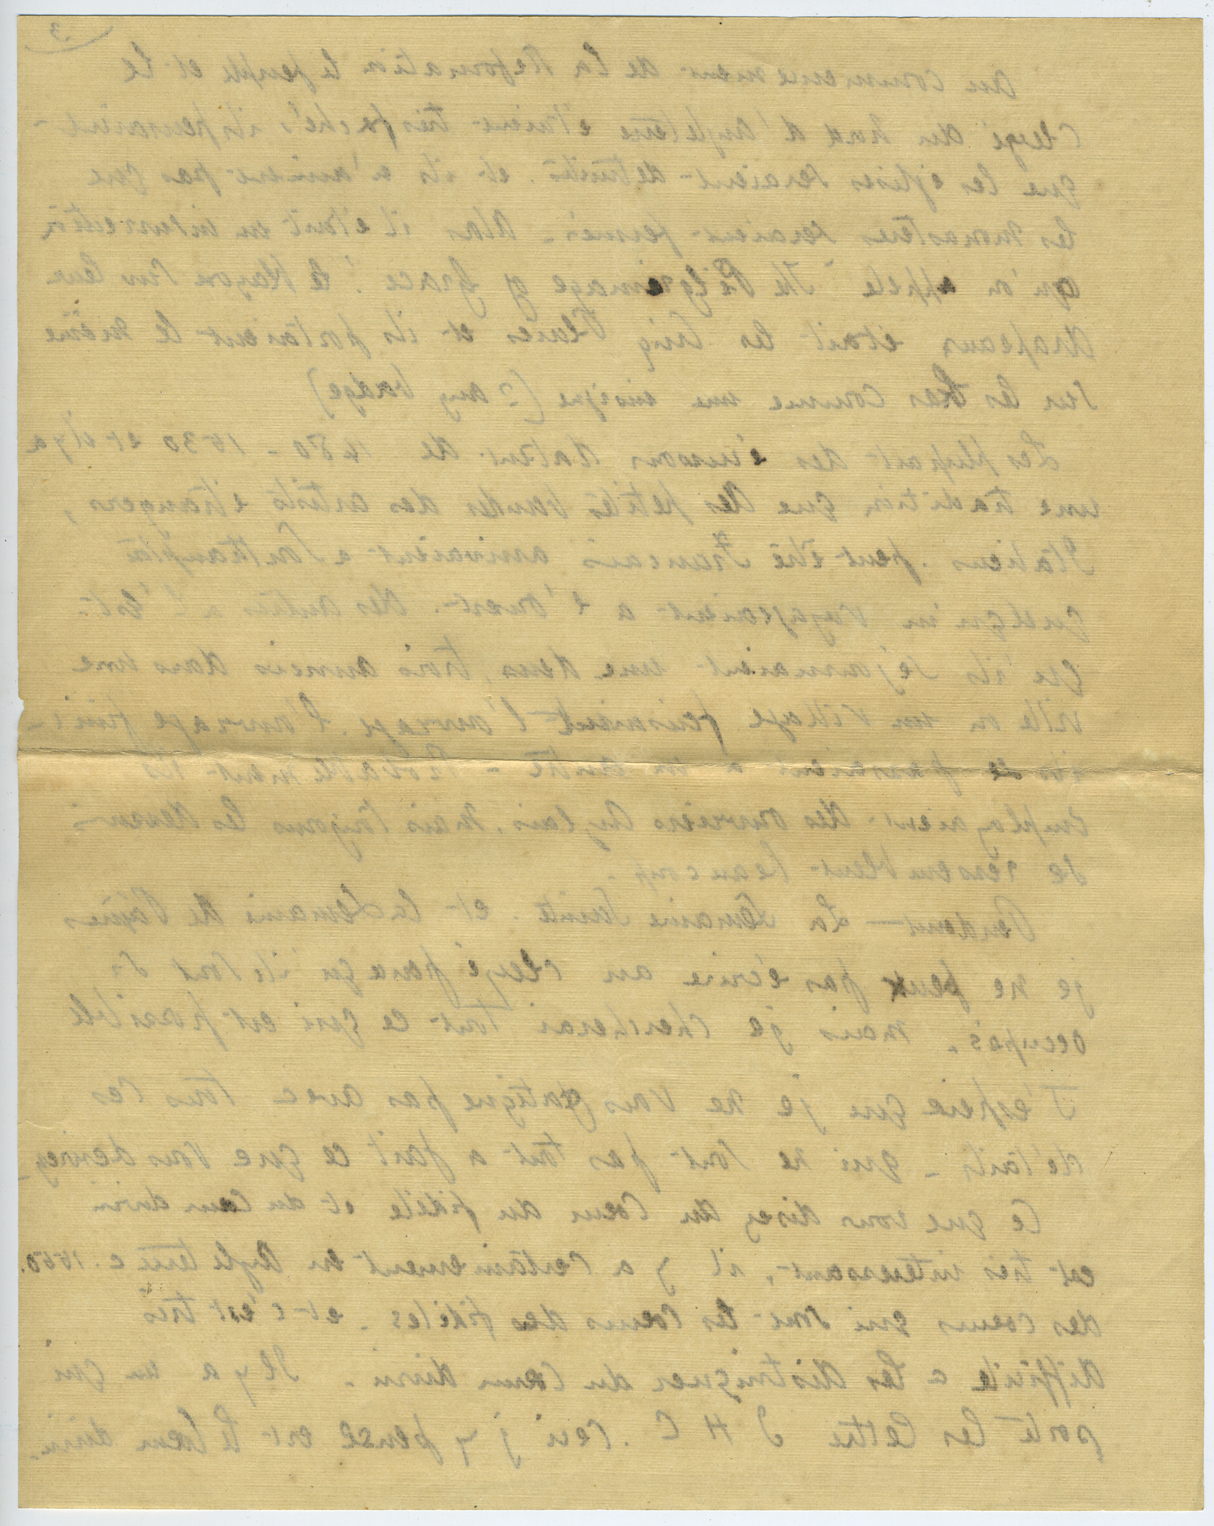 3
Au commencement de la Reformation le peuple et le
clergé du nord d'Angleterre etaient tres fachés ils pensaient
que les eglises seraient detruites. et ils n'aimaient pas que
les monasteres seraient fermés. Alors il etait un insurrection
qu'on appele "The Pilgrimage of Grace". le blazon sur leur
drapeaux etait les Cinq Plaies et ils portaient le même
sur les bras comme une insigne (? any badge)
Les plupart des écussons datent de 1480 - 1530 et il y a
une tradition que des petites bandes des artists étrangers,
Italiens. peut être Francais arrivaient a Southampton
quelqu'un voyageaient a l'ouest. des autres a l'est
qu'ils séjournaient une deux, trois années dans une
ville ou un village faisaient l'ouvrage. L'ouvrage fini
ils se passaient a un autre - Probablement ils
employaient des ouvriers Anglais. mais toujours les dessins
se ressemblent beaucoup.
Pendant — La Semaine Sainte. et la Semaine de Pâques
je ne peux pas écrire au clergé parcequ'ils sont si
occupés. mais je chercherai tout ce qui est possible
J'espere que je ne vous fatigue pas avec tous ces
details - qui ne sont pas tout a fait ce que vous desirez
Ce que vous disez du Coeur du fidèle et du Coeur divin
est tres interessant, il y a certainement en Angleterre c. 1550.
des coeurs qui sont les Coeurs des fidèles. et c'est très
difficile a les distinguer du Coeur divin. Il y a un qui
porte les lettre I H C. ceci j'y pense est le Coeur divin.